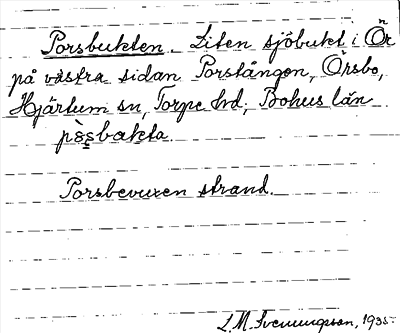 Porsbukten. Liten sjöbukt i Ör
på västra sidan Porstången, Örsbo,
Hjärtum sn, Torpe hd, Bohus län
pàsbakta.
Porsbevuxen strand.
L.M. Svenungsson, 1935.